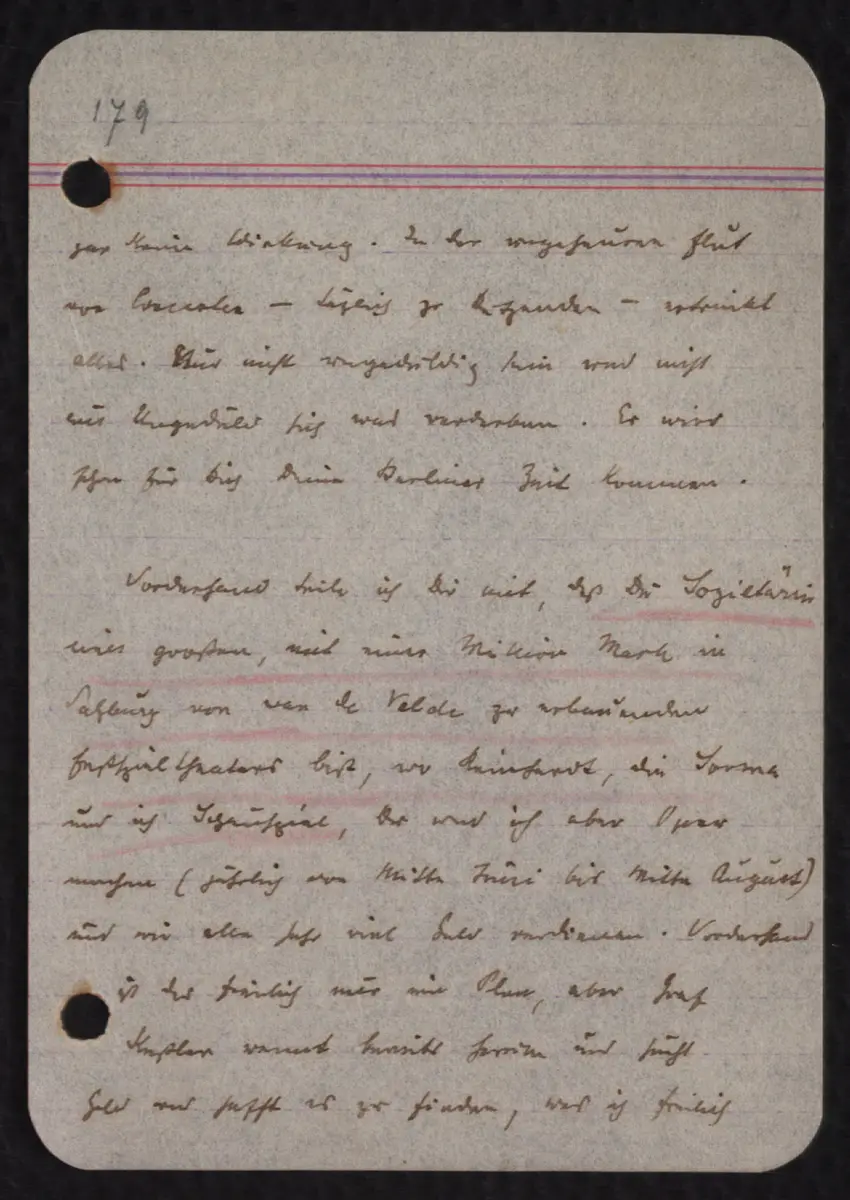 179
gar keine Wirkung. In der ungeheuren Flut
von Concerten — täglich zu Dutzenden — ertrinkt
alles. Nur nicht ungeduldig sein und nicht
aus Ungeduld sich was verderben. Es wird
schon für Dich Deine Berliner Zeit kommen.
Vorderhand teile ich Dir mit, daß Du Sozietärin
eines großen, mit einer Million Mark in
Salzburg von van de Velde zu erbauenden
Festspieltheaters bist, wo Reinhardt, die Sorma
und ich Schauspiel, Du und ich aber Oper
machen (jährlich von Mitte Juni bis Mitte August)
und wir alle sehr viel Geld verdienen. Vorderhand
ist das freilich nur ein Plan, aber Graf
Kessler rennt bereits herum und sucht
Geld und hofft es zu finden, was ich freilich